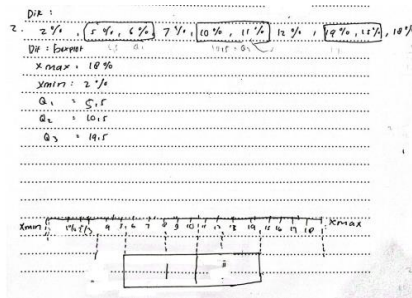 Dik :
2. 2%, 5%, 6%, 7%, 10%, 11%, 12%, 14%, 15%, 18%
Dit : boxplot
Xmax : 18%
Xmin : 2%
Q1 : 5,5
Q2 : 10,5
Q3 : 14,5
Xmin 7 8 9 10 11 12 13 14 15 16 17 18 Xmax